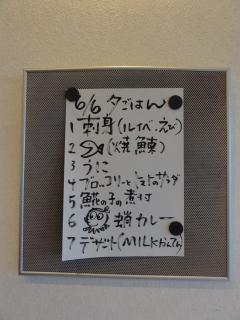 6/6 夕ごはん
1 刺身(ルイベ、えび)
2 (焼鰊)
3 うに
4 ブロッコリーとトマトのサラダ
5 鯤の子の煮付
6 蛸カレー
7 デザート(MILKかんてん)